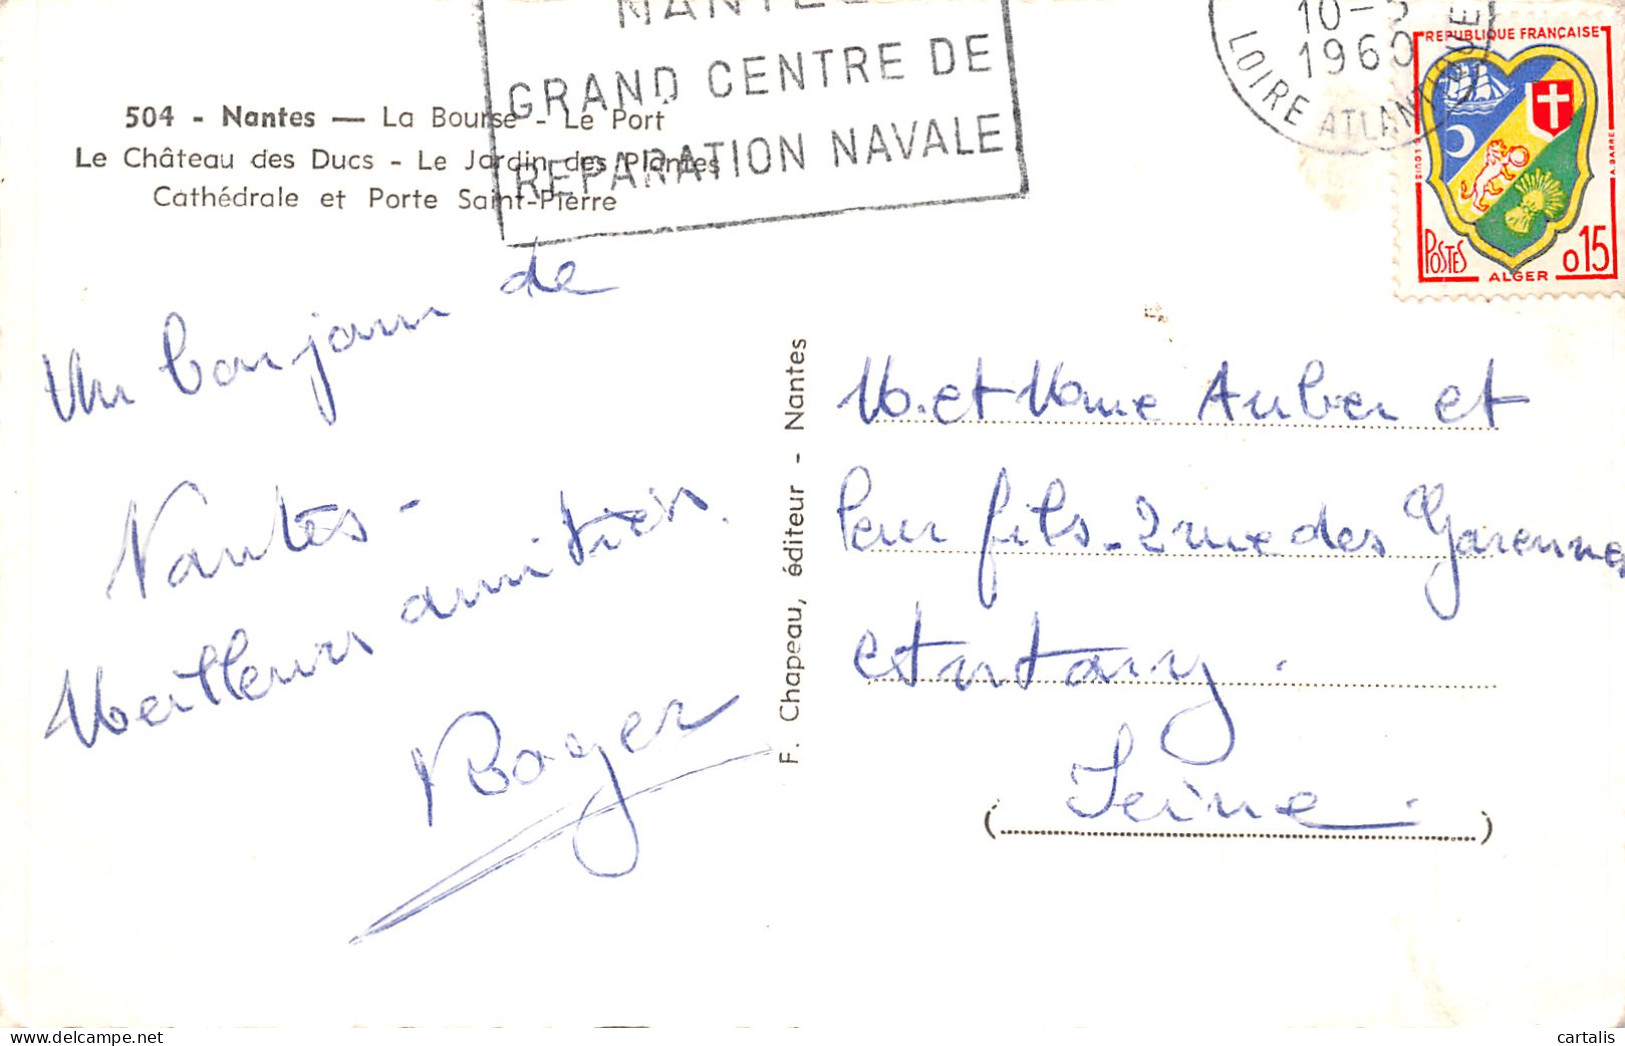 NANTES
GRAND CENTRE DE
REPARATION NAVALE
10-5
1960
LOIRE ATLANTIQUE
REPUBLIQUE FRANÇAISE
POSTES
ALGER
0,15
504 - Nantes — La Bourse - Le Port
Le Château des Ducs - Le Jardin des Plantes
Cathédrale et Porte Saint-Pierre
Un bonjour de
Nantes -
Meilleurs amitiés.
Roger
F. Chapeau, éditeur - Nantes
M. et Mme Auber et
leur fils - 2 rue des Garennes
Antony.
(Seine.)
delcampe.net
cartalis